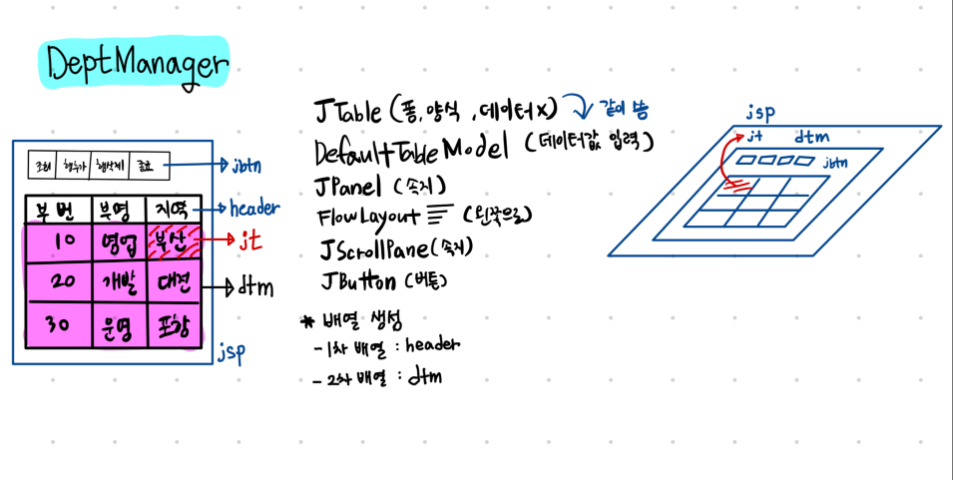 DeptManager
조회 행추가 행삭제 종료
jbtn
부번 부명 지역
header
10 영업 부산
jt
20 개발 대전
dtm
30 운영 포항
jsp
JTable (폼, 양식, 데이터x) 같이 씀
DefaultTableModel (데이터값 입력)
JPanel (속지)
FlowLayout (왼쪽으로)
JScrollPane (속지)
JButton (버튼)
* 배열 생성
- 1차 배열 : header
- 2차 배열 : dtm
jsp
jt dtm
jbtn